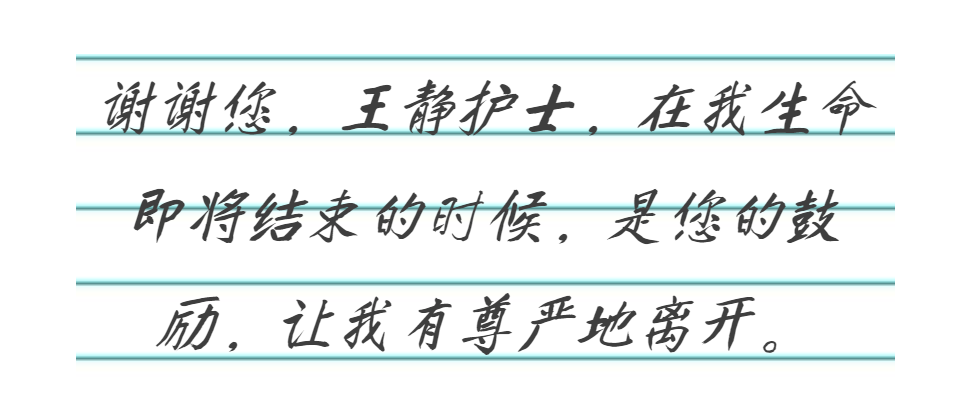 谢谢您，王静护士，在我生命
即将结束的时候，是您的鼓
励，让我有尊严地离开。